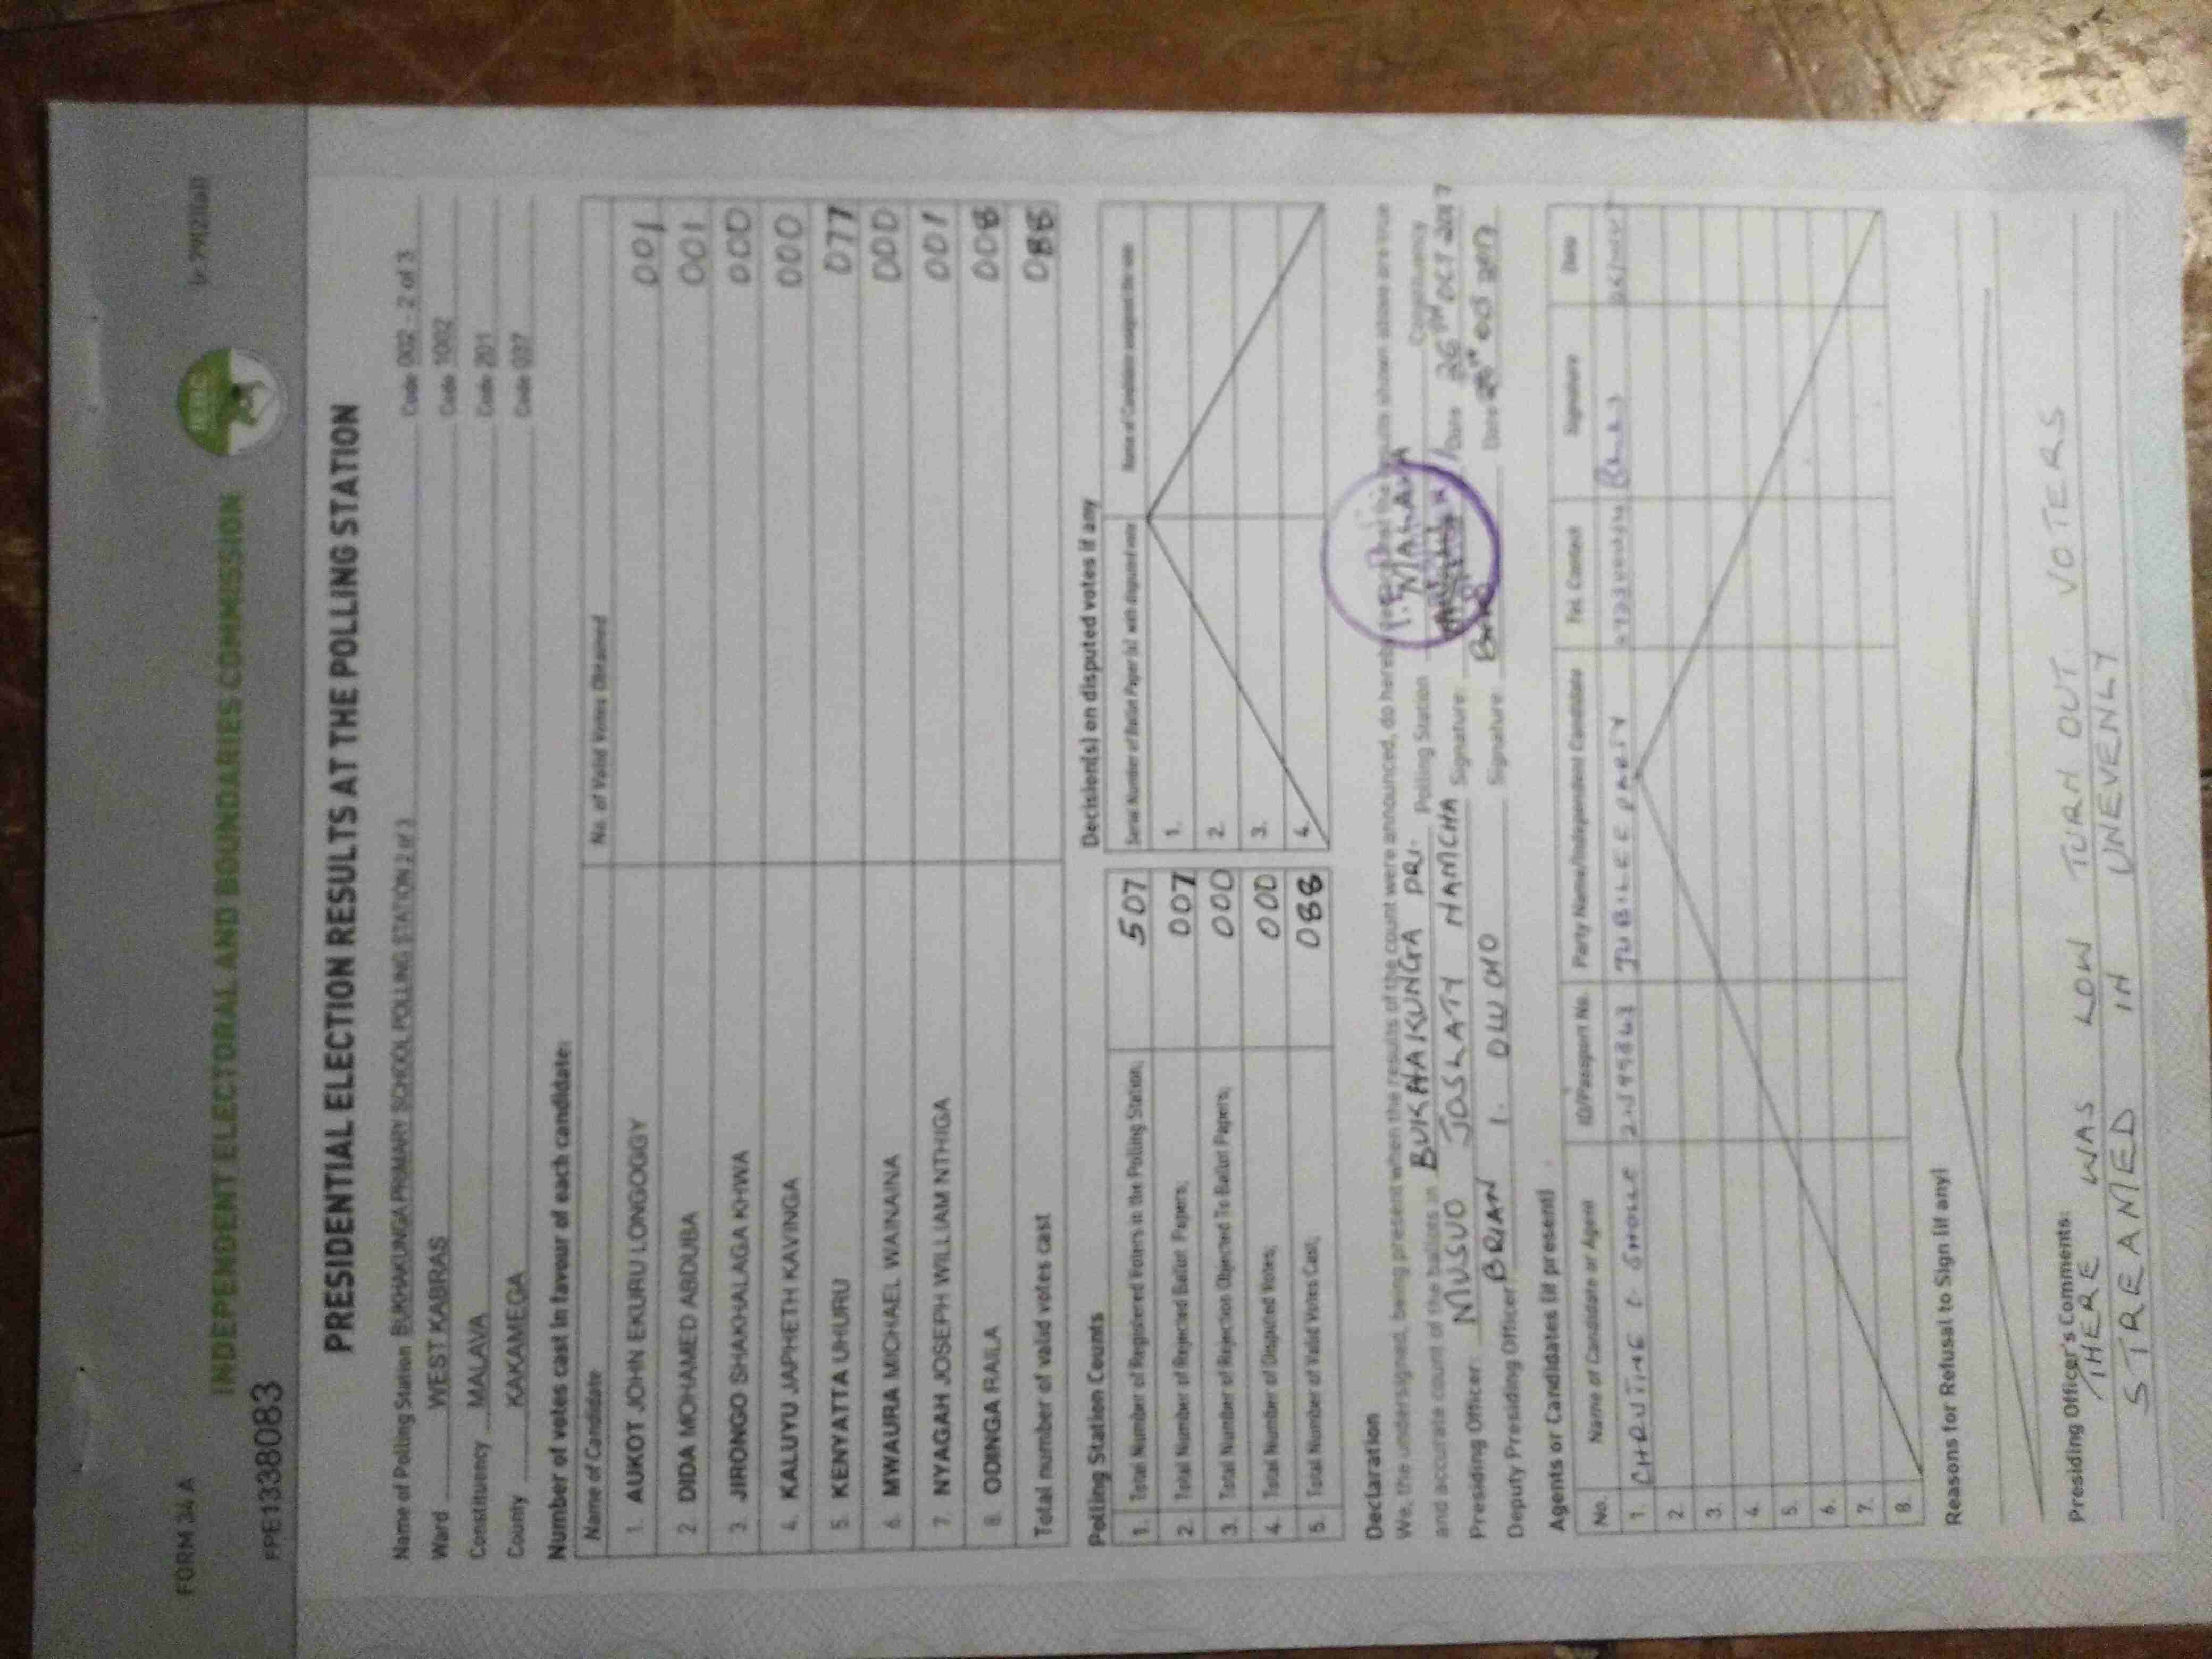 FORM 34 A
INDEPENDENT ELECTORAL AND BOUNDARIES COMMISSION
PPE1338083
PRESIDENTIAL ELECTION RESULTS AT THE POLLING STATION
Name of Polling Station BUKHAKUNGA PRIMARY SCHOOL POLLING STATION 2 of 3 Code 002 - 2 of 3
Ward WEST KABRAS Code 1002
Constituency MALAVA Code 201
County KAKAMEGA Code 037
Number of votes cast in favour of each candidate:
Name of Candidate No. of Valid Votes Obtained
1. AUKOT JOHN EKURU LONGOGGY 001
2 DIDA MOHAMED ABDUBA 001
3. JIRONGO SHAKHALAGA KHWA 000
4. KALUYU JAPHETH KAVINGA 000
5 KENYATTA UHURU 077
6 MWAURA MICHAEL WAINAINA 000
7 NYAGAH JOSEPH WILLIAM NTHIGA 001
8. ODINGA RAILA 008
Total number of valid votes cast 088
Polling Station Counts
1. Total Number of Registered Voters in the Polling Station; 507
2. Total Number of Rejected Ballot Papers; 007
3. Total Number of Rejection Objected To Ballot Papers; 000
4. Total Number of Disputed Votes; 000
5. Total Number of Valid Votes Cast; 088
Decision(s) on disputed votes if any
Serial Number of Ballot Paper (s) with disputed vote Name of Candidate awarded the vote
1.
2.
3.
4.
Declaration
We, the undersigned, being present when the results of the count were announced, do hereby the results shown above are true
and accurate count of the ballots in BUKHAKUNGA PRI. Polling Station MALAVA Constituency
Presiding Officer: MUSUO JOSLATY NAMCHA Signature: Date 26TH OCT 2017
Deputy Presiding Officer BRIAN I. OWOYO Signature: Date
Agents or Candidates (if present)
No. Name of Candidate or Agent ID/Passport No. Party Name/Independent Candidate Tel. Contact Signature Date
1. JUBILEE PARTY
2.
3.
4.
5.
6.
7.
8.
Reasons for Refusal to Sign (if any)
Presiding Officer's Comments:
THERE WAS LOW TURN OUT. VOTERS
STREAMED IN UNEVENLY